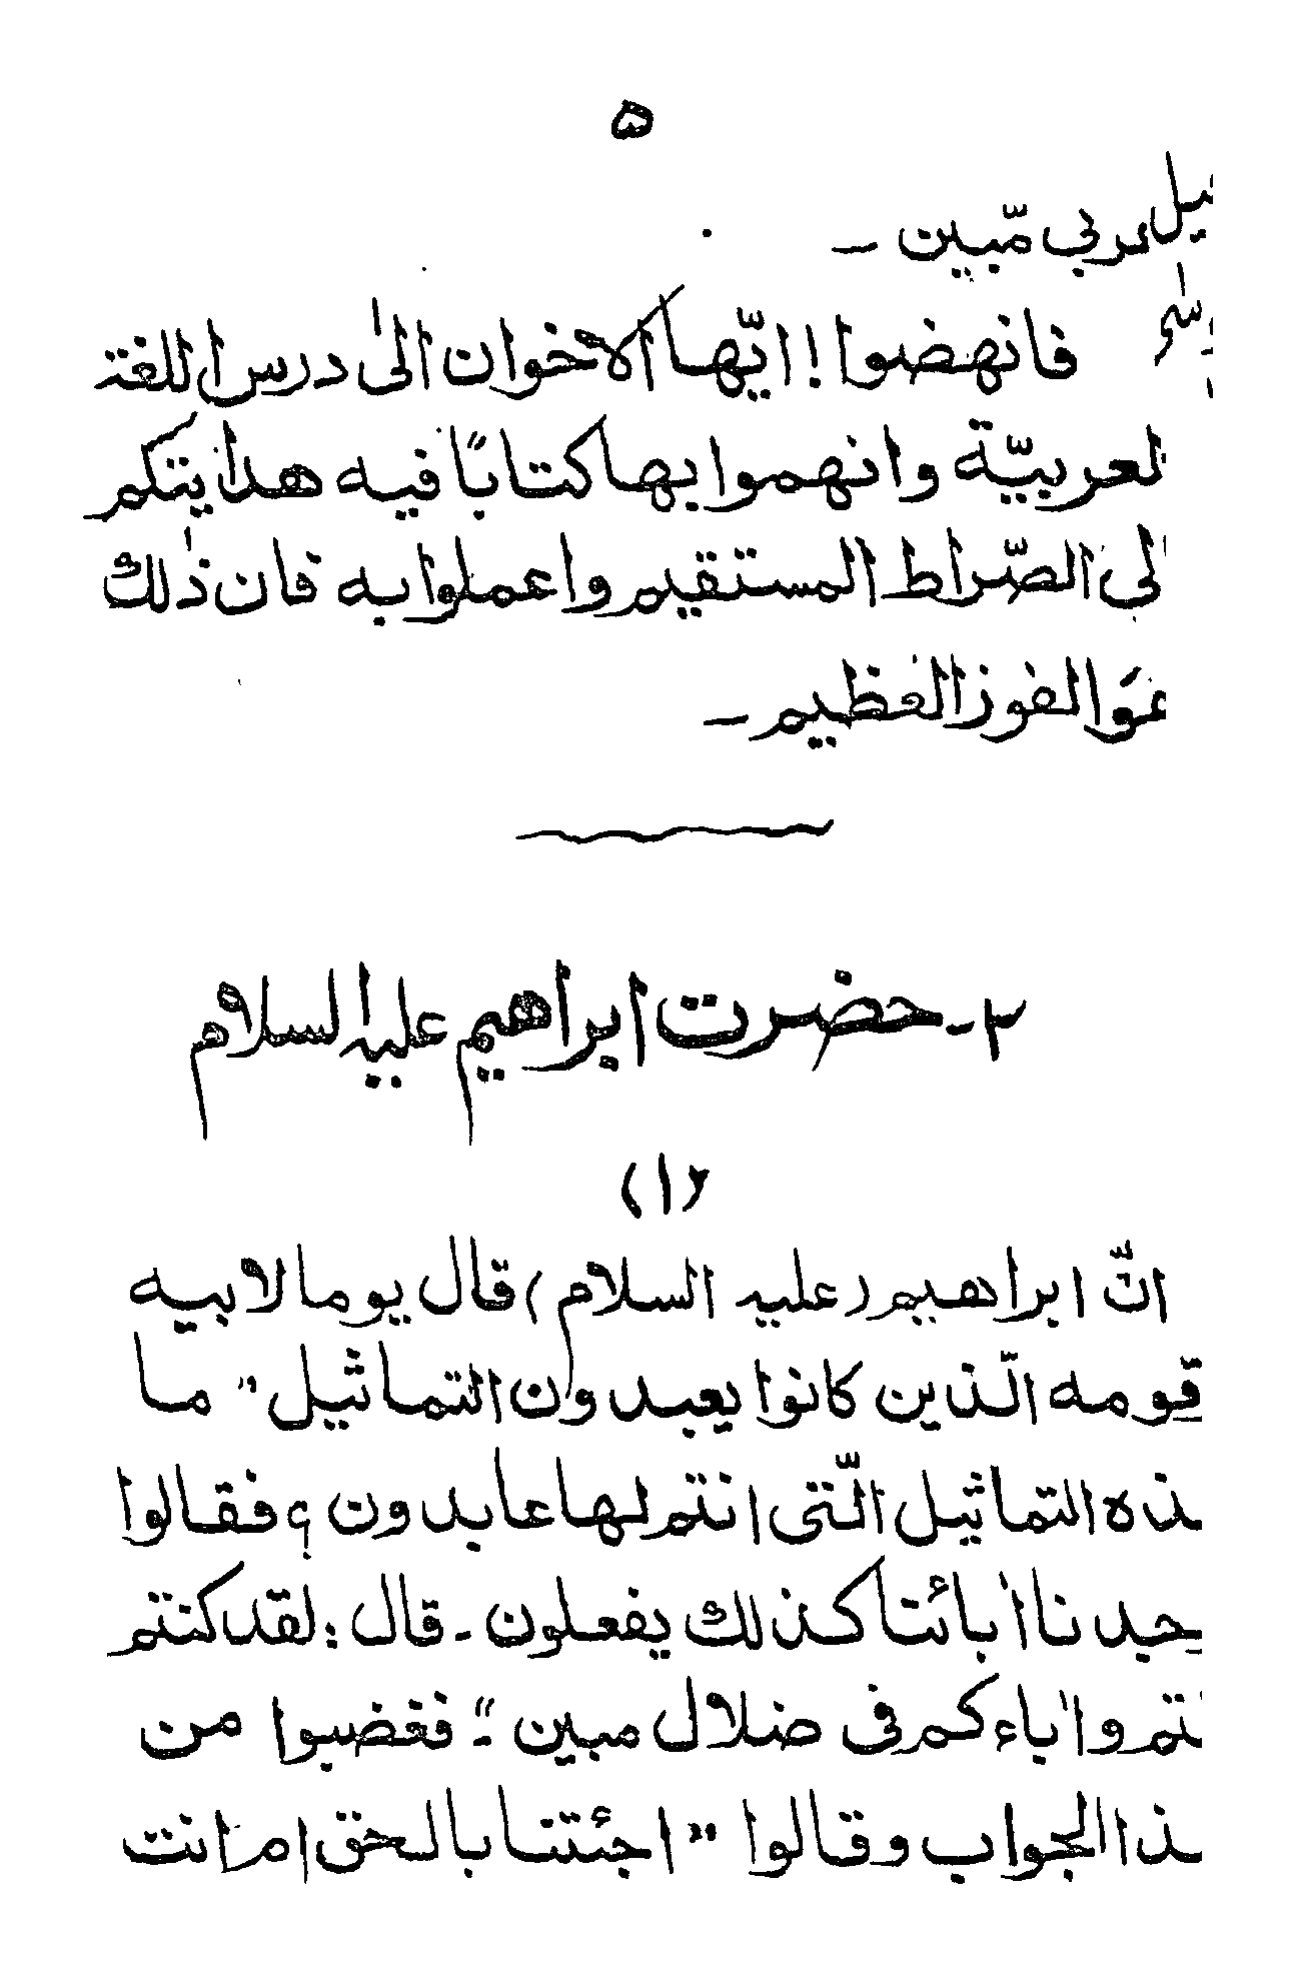 ۵
عربي مّبين ـ
فانهضوا ! ايّها الاخوان الىٰ درس اللغة
لعربيّة وانهموا بها كتابًا فيه هدايتكم
لى الصّراط المستقيم واعملوا به فان ذٰلك
هوَ الفوز العظيم ـ
٢ـ حضرت ابراهيم عليه السلام
(١)
انّ ابراهيم (عليه السلام) قال يوما لابيه
قومه الّذين كانوا يعبدون التماثيل " ما
ـذه التماثيل الّتى انتم لها عابدون ؟ فقالوا
ـجدنا اٰبائنا كذلك يفعلون ـ قال : لقد كنتم
نتم واٰباءكم فى ضلال مبين " ـ فغضبوا من
ـذا الجواب وقالوا " اجئتنا بالحق ام انت